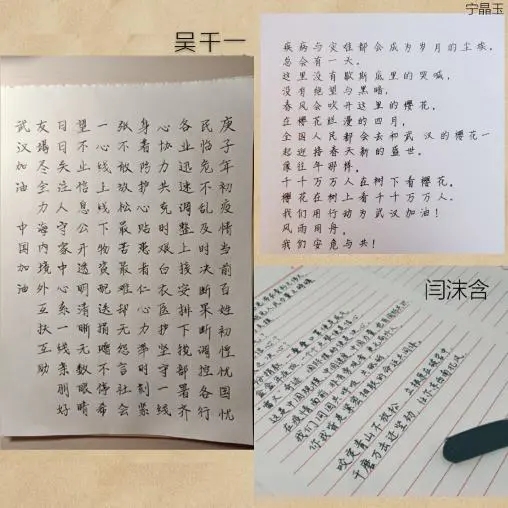 吴千一
庚子年初疫情当前百姓初惶忧国忧
民临危不乱及时决断果断调控各行
各业迅速调整上接安排下揽部署齐
心协力共克时艰白衣医护坚守一线
身着防护心贴患者仁心力举时刻紧
张不敢放松最苦最难却无怨言社会
一心线上线下物资配送捐赠不停希
望不止信息公开透明清晰无数眼睛
日日关注守家中心系一线亲朋好
友竭尽全力海内境外互扶互助
武汉加油 中国加油
宁晶玉
疾病与灾难都会成为岁月的尘埃。
总会有一天，
这里没有歇斯底里的哭喊，
没有绝望与黑暗，
春风会吹开这里的樱花。
在樱花烂漫的四月，
全国人民都会去和武汉的樱花一
起迎接春天新的盛世。
像往年那样，
千千万万人在树下看樱花，
樱花在树上看千千万万人。
我们用行动为武汉加油！
风雨同舟，
我们安危与共！
闫沫含
咬定青山不放松 立根原在破岩中
千磨万击还坚劲 任尔东西南北风